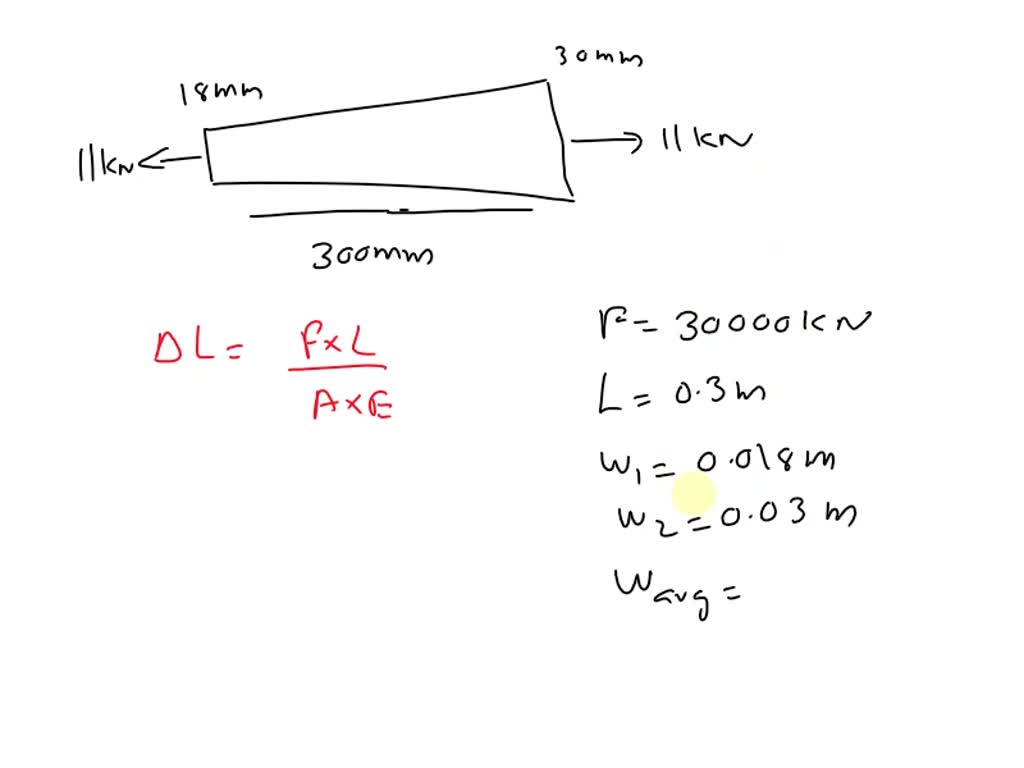 30mm
18mm
11kN
11kN
300mm
ΔL = F×L / A×E
F = 30000kN
L = 0.3m
W1 = 0.018m
W2 = 0.03m
Wavg =